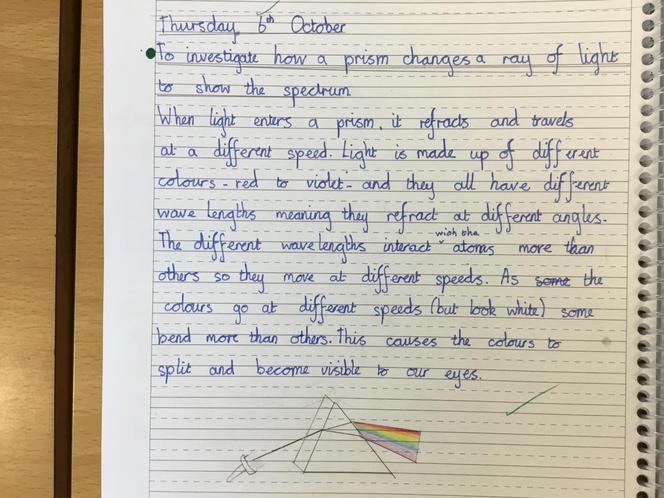 Thursday 6th October
To investigate how a prism changes a ray of light
to show the spectrum
When light enters a prism, it refracts and travels
at a different speed. Light is made up of different
colours - red to violet - and they all have different
wave lengths meaning they refract at different angles.
The different wave lengths interact with the atoms more than
others so they move at different speeds. As some the
colours go at different speeds (but look white) some
bend more than others. This causes the colours to
split and become visible to our eyes.